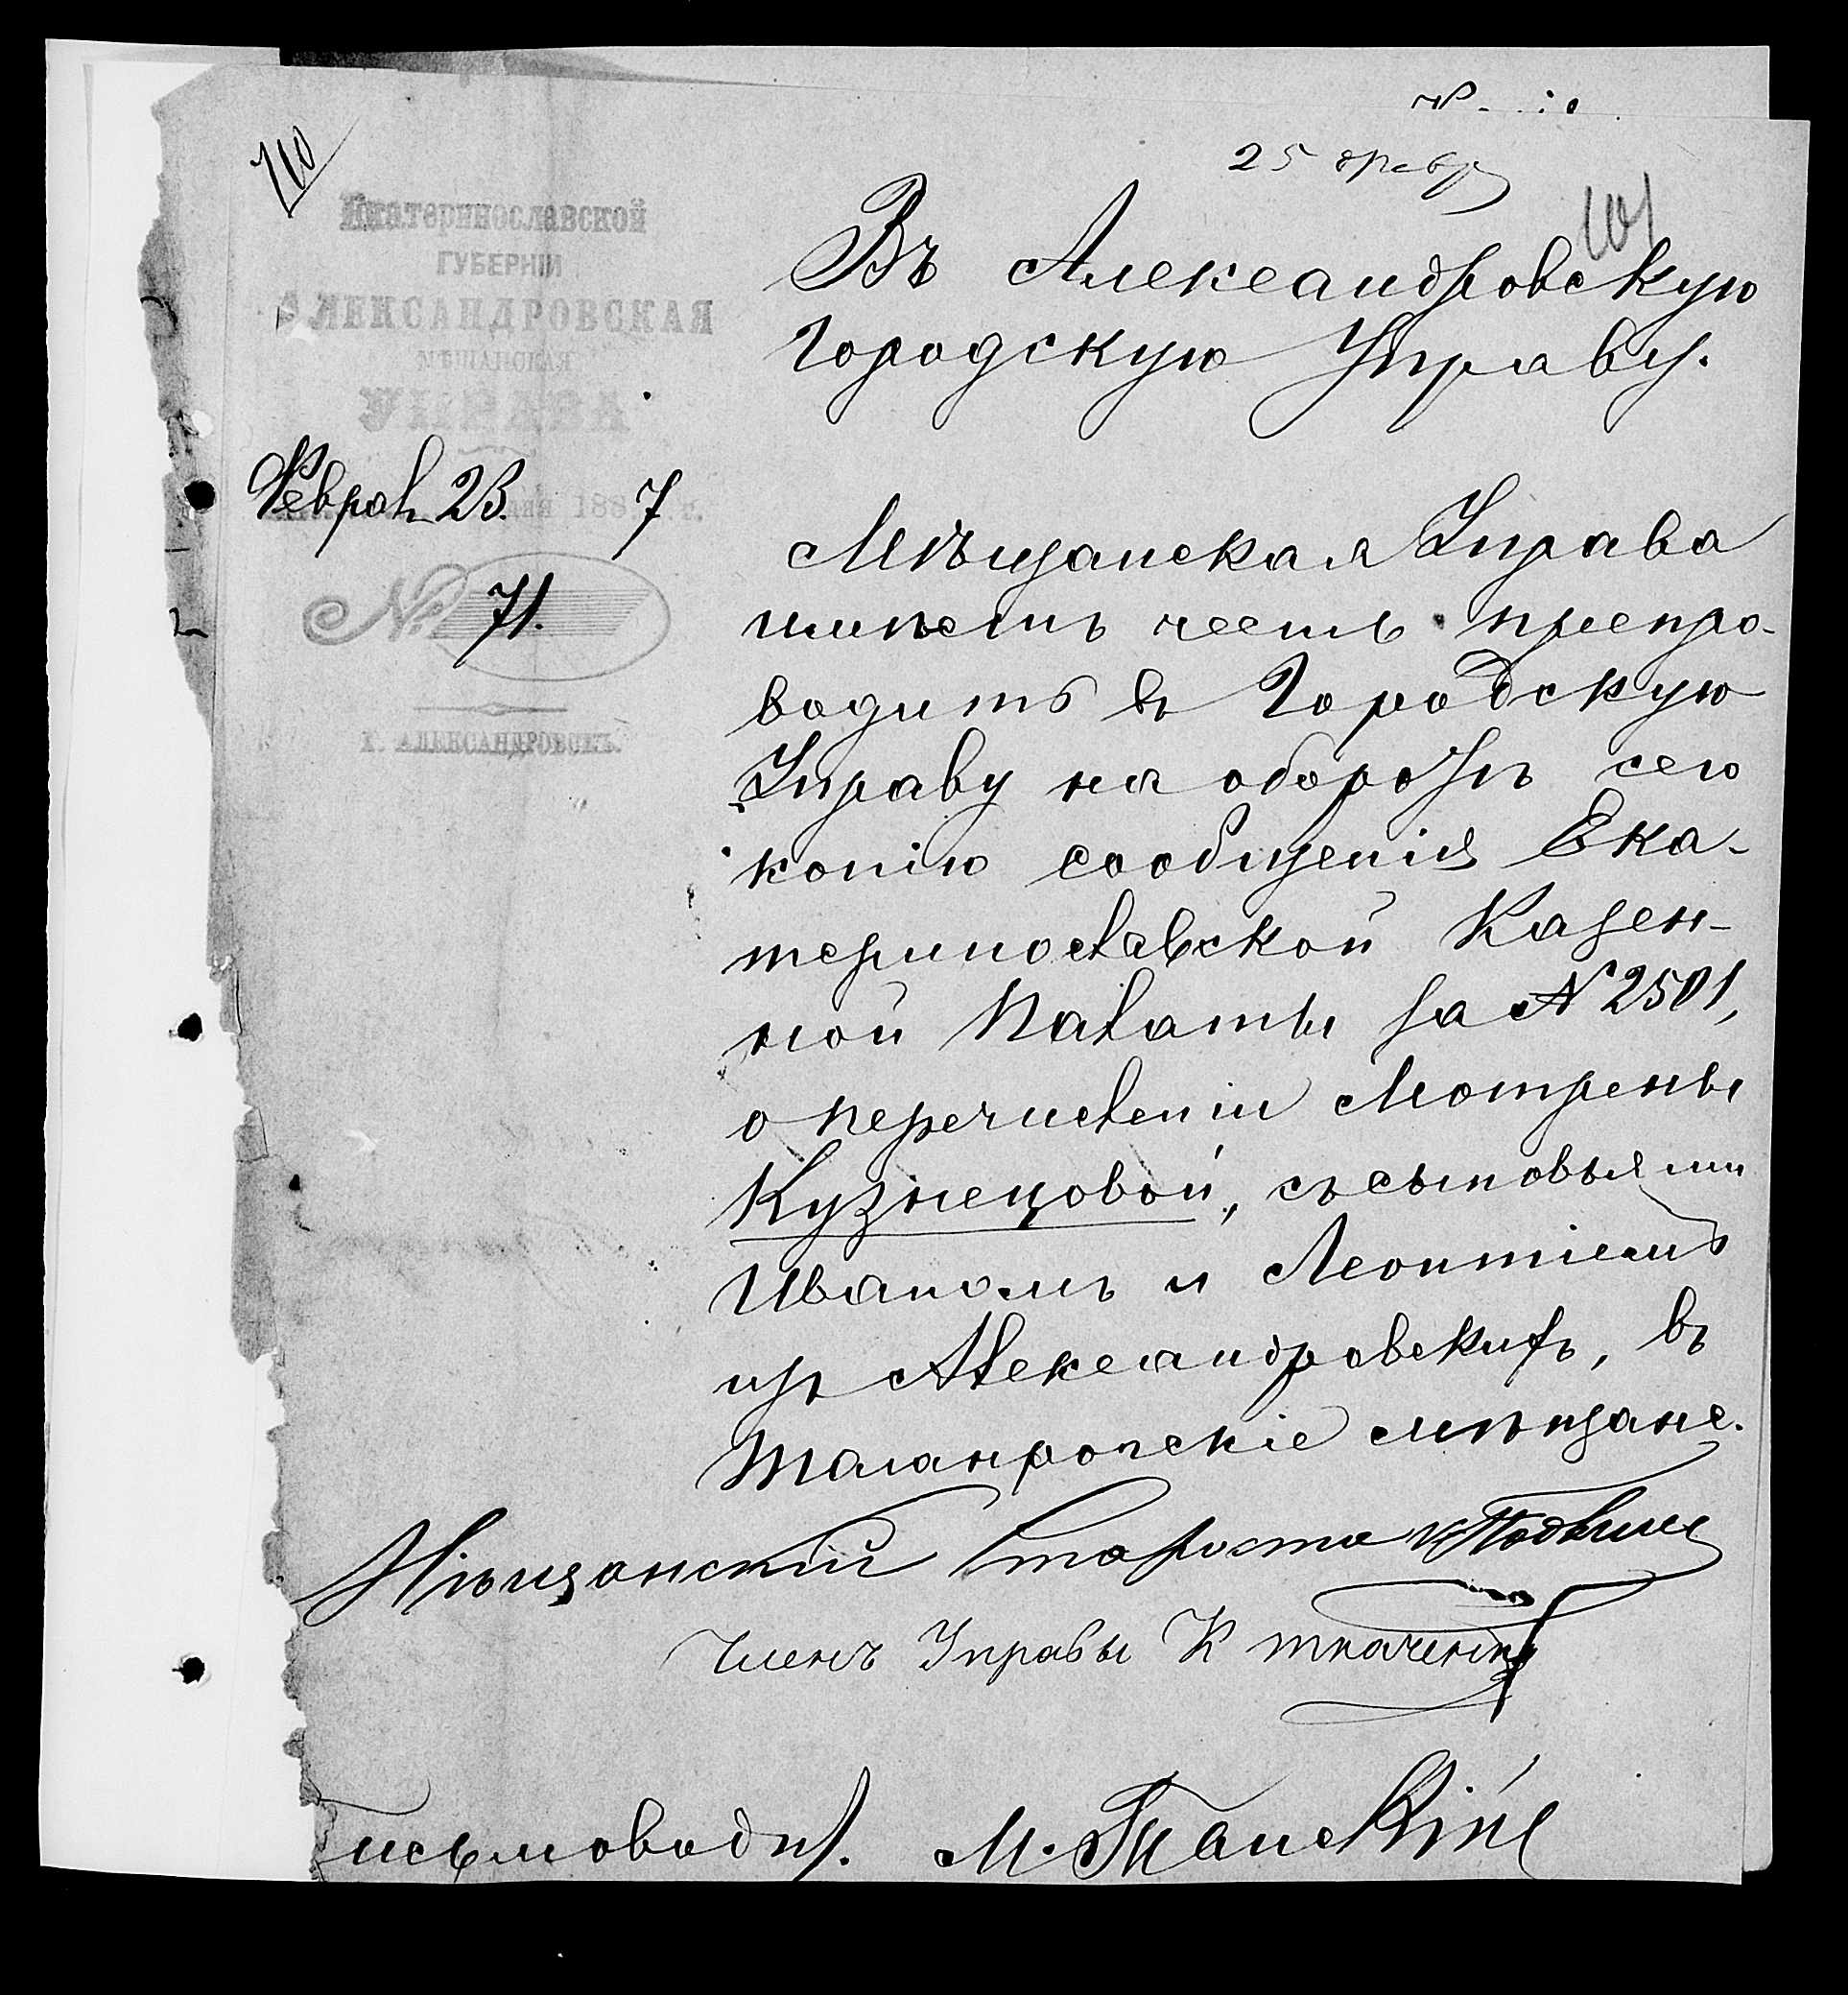 710
25 февр
101
Екатеринославской
ГУБЕРНІИ
АЛЕКСАНДРОВСКАЯ
МѢЩАНСКАЯ
УПРАВА
Феврал 23. дня 1887 г.
№ 71.
г. АЛЕКСАНДРОВСКЪ.
Въ Александровскую
Городскую Управу.
Мѣщанская Управа
имѣетъ честь препро-
водить въ Городскую
Управу на оборотѣ сего
копію сообщенія Ека-
теринославской Казен-
ной Палаты за № 2501,
о перечисленіи Мотрены
Кузнецовой, съ сыновьями
Иваномъ и Леонтіемъ
изъ Александровскихъ, въ
Таганрогскіе мѣщане.
Мѣщанскій Староста
Членъ Управы К Ткаченко
Письмоводит.